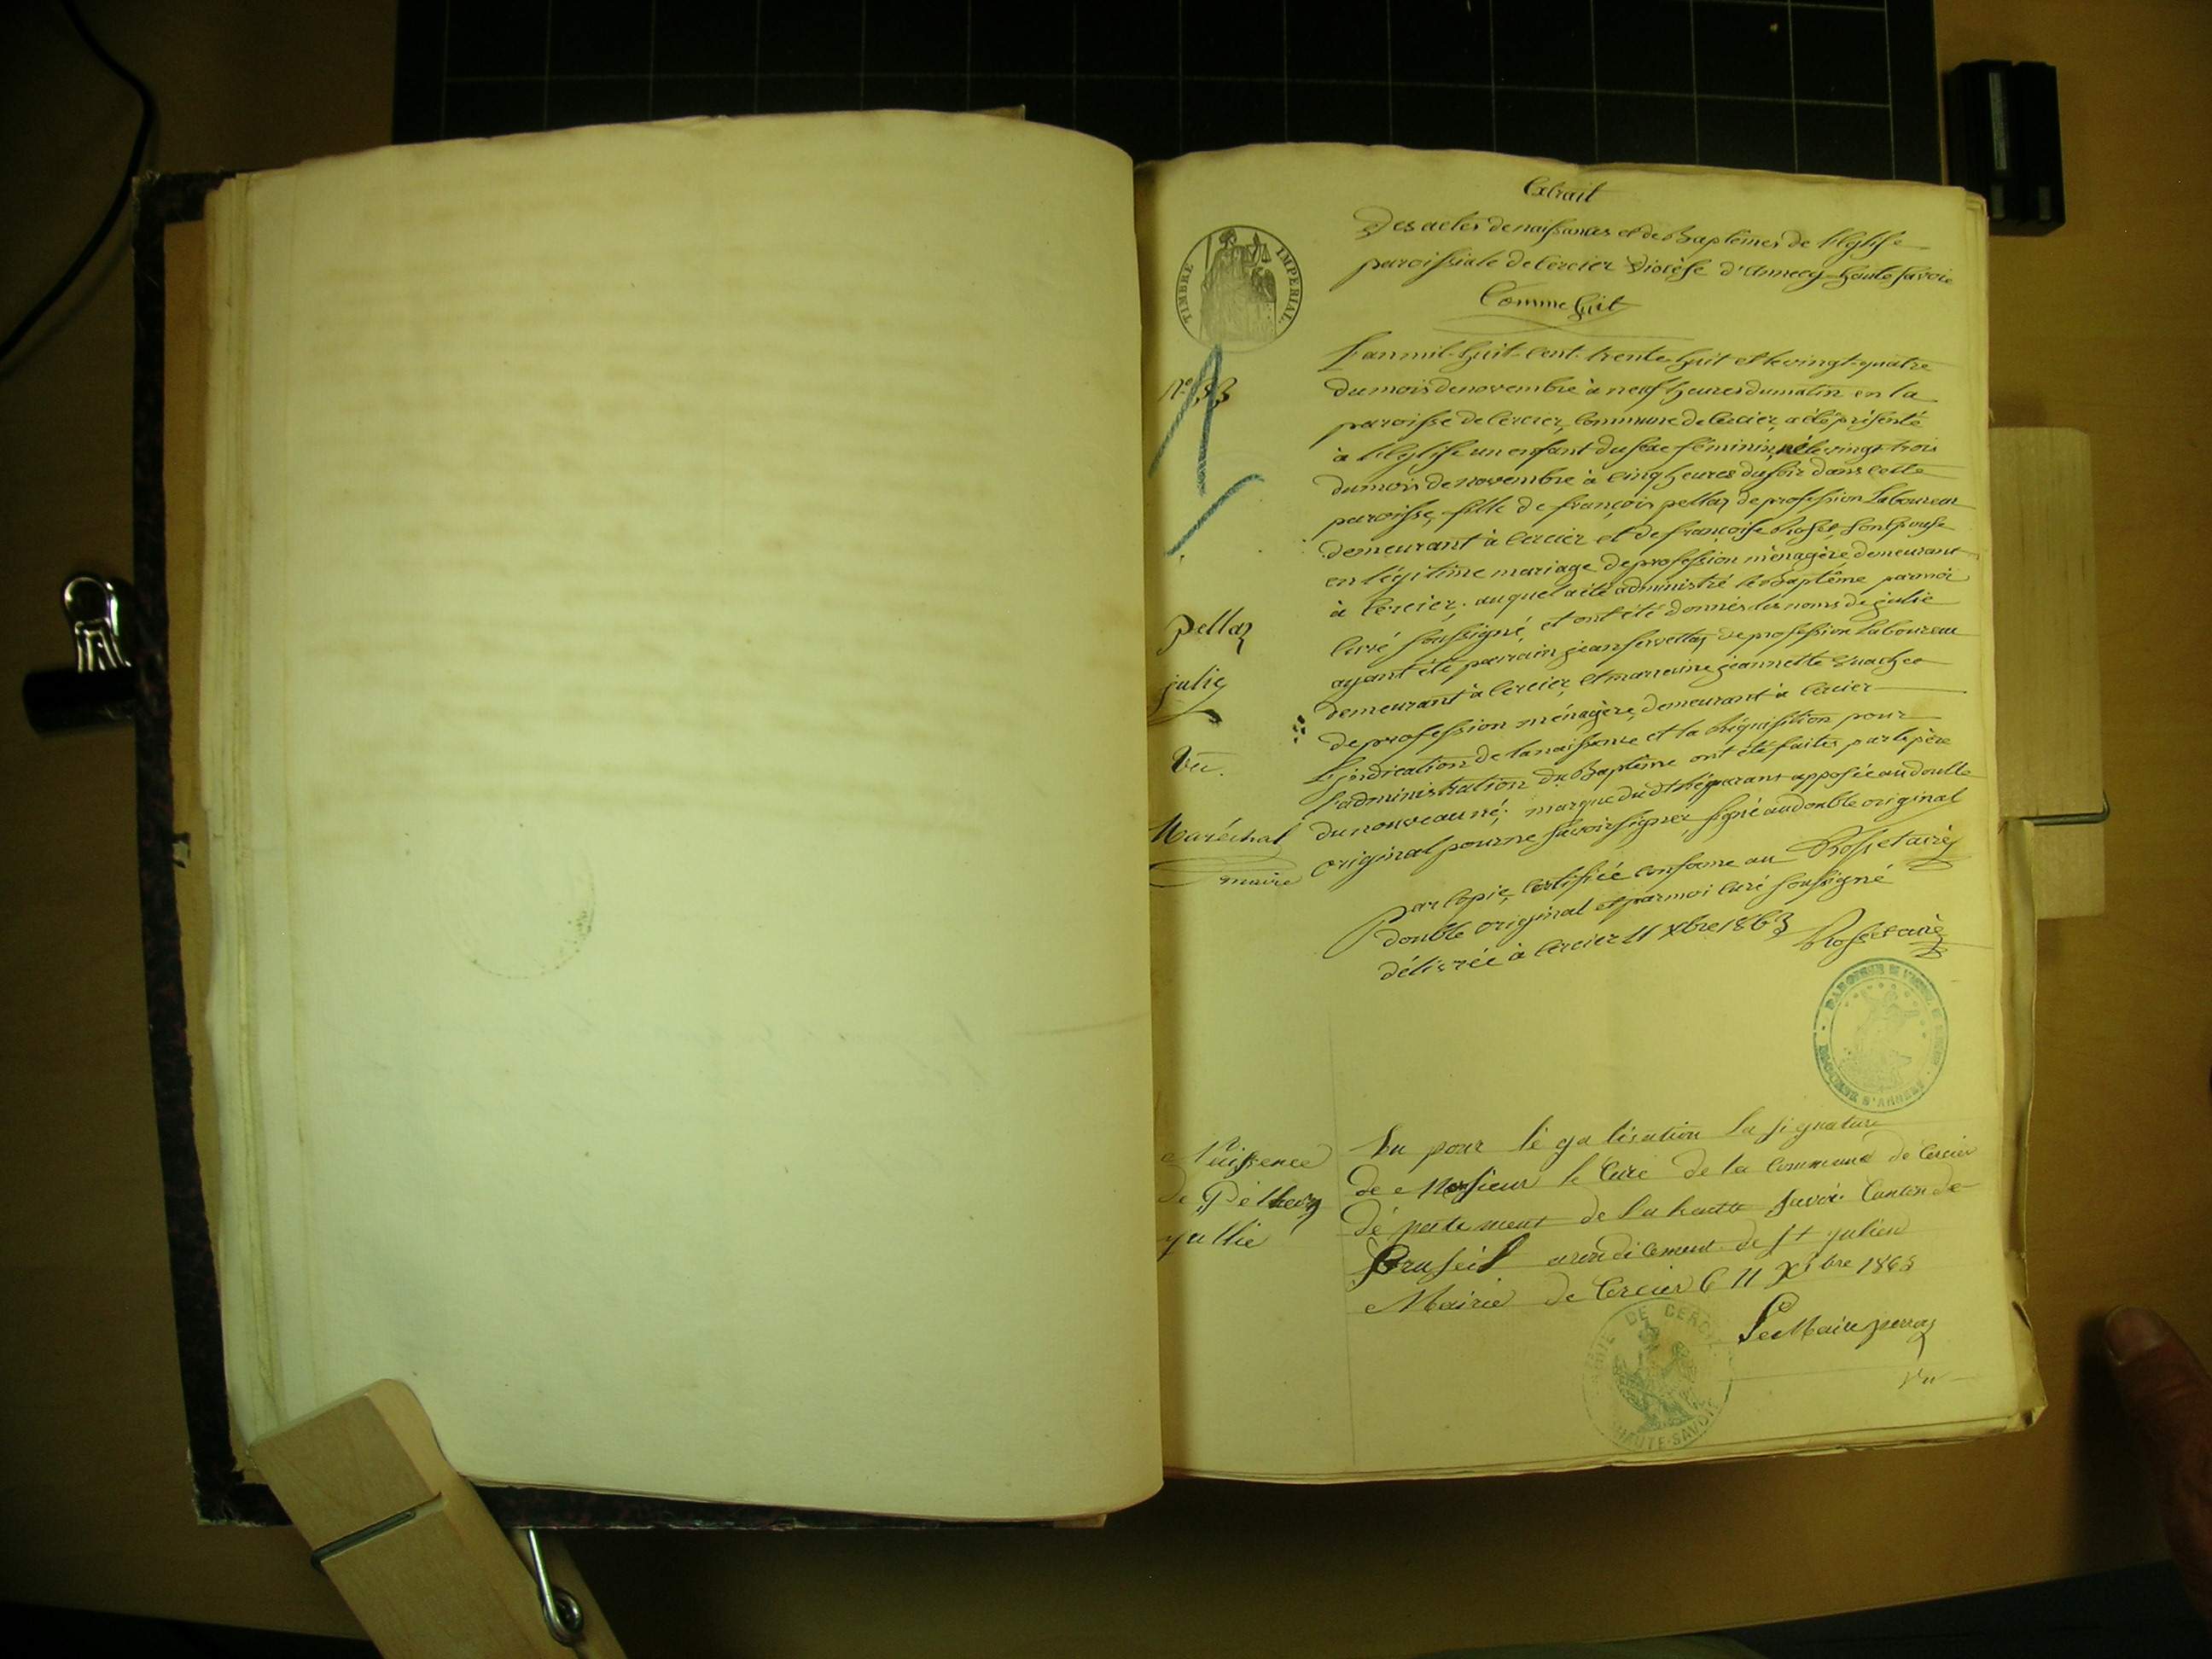 Extrait
Des actes de naissances et de Baptêmes de l'Eglise
paroissiale de Cercier Diocèse d'Annecy haute Savoie
Comme Suit
TIMBRE IMPERIAL
L'an mil-huit-cent-trente-huit et le vingt-quatre
N° 33
du mois de novembre à neuf heures du matin en la
paroisse de Cercier, Commune de Cercier, a été présenté
à l'Eglise un enfant du sexe féminin, né le vingt-trois
du mois de novembre à cinq heures du soir dans cette
paroisse, fille de françois pellaz de profession Laboureur
demeurant à Cercier et de françoise Roset, son Epouse
en légitime mariage de profession ménagère, demeurant
à Cercier; auquel a été administré le Baptême par moi
pellaz
Curé soussigné, et ont été donnés les noms de julie
ayant été parrain jean servettaz de profession Laboureur
julie
demeurant à Cercier, et marraine jeannette
de profession ménagère, demeurant à Cercier
Vu.
L'indication de la naissance et la Réquisition pour
l'administration du Baptême ont été faites par le père
du nouveau né; marque du dt Réquérant apposée au double
Maréchal
original pour ne savoir signer, signé au double original
maire
Par Copie, Certifiée conforme au Rosset curé
double original et par moi Curé soussigné
délivrée à Cercier 11 xbre 1863 Rosset curé
Naissence
de Pellaz
jullie
Vu pour lé galisation la signature
de Monsieur le Curé de la Commune de Cercier
dé partement de la haute Savoie Canton de
Cruseil arondicement de St julien
Mairie de Cercier le 11 Xbre 1863
Le Maire perraz
MAIRIE DE CERCIER
HAUTE-SAVOIE
Vu